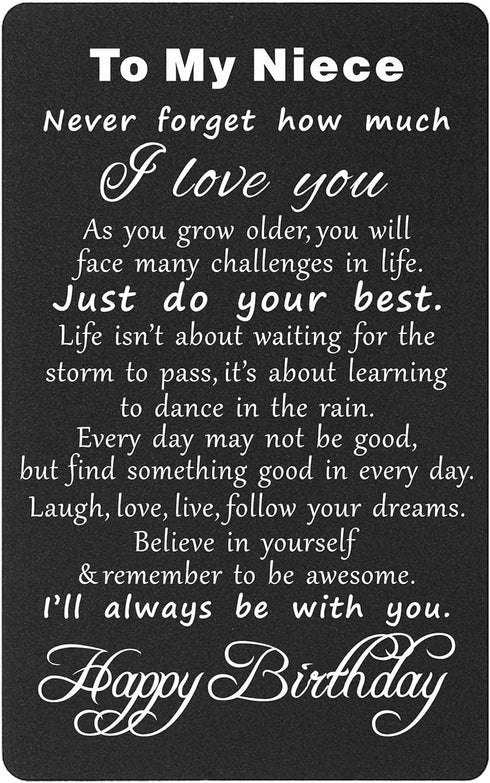 To My Niece
Never forget how much
I love you
As you grow older, you will
face many challenges in life.
Just do your best.
Life isn't about waiting for the
storm to pass, it's about learning
to dance in the rain.
Every day may not be good,
but find something good in every day.
Laugh, love, live, follow your dreams.
Believe in yourself
& remember to be awesome.
I'll always be with you.
Happy Birthday